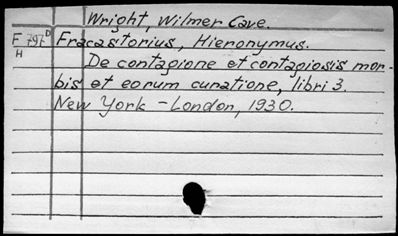 Wright, Wilmer Cave.
F 797 D Fracastorius, Hieronymus.
H
De contagione et contagiosis mor-
bis et eorum curatione, libri 3.
New York - London, 1930.